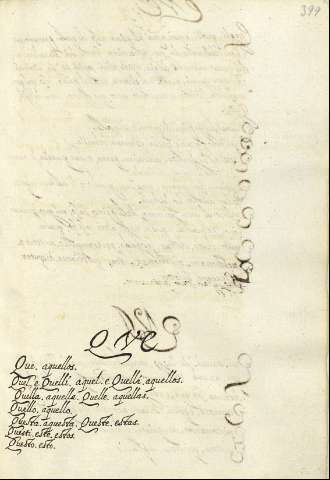 399
QVE
Que. aquellos.
Quel. e Quelli. aquel. e Quella. aquellos.
Quella. aquella. Quelle. aquellas.
Quello. aquello.
Questa. aquesta. Queste. estas.
Questi. este. estos.
Questo. esto.